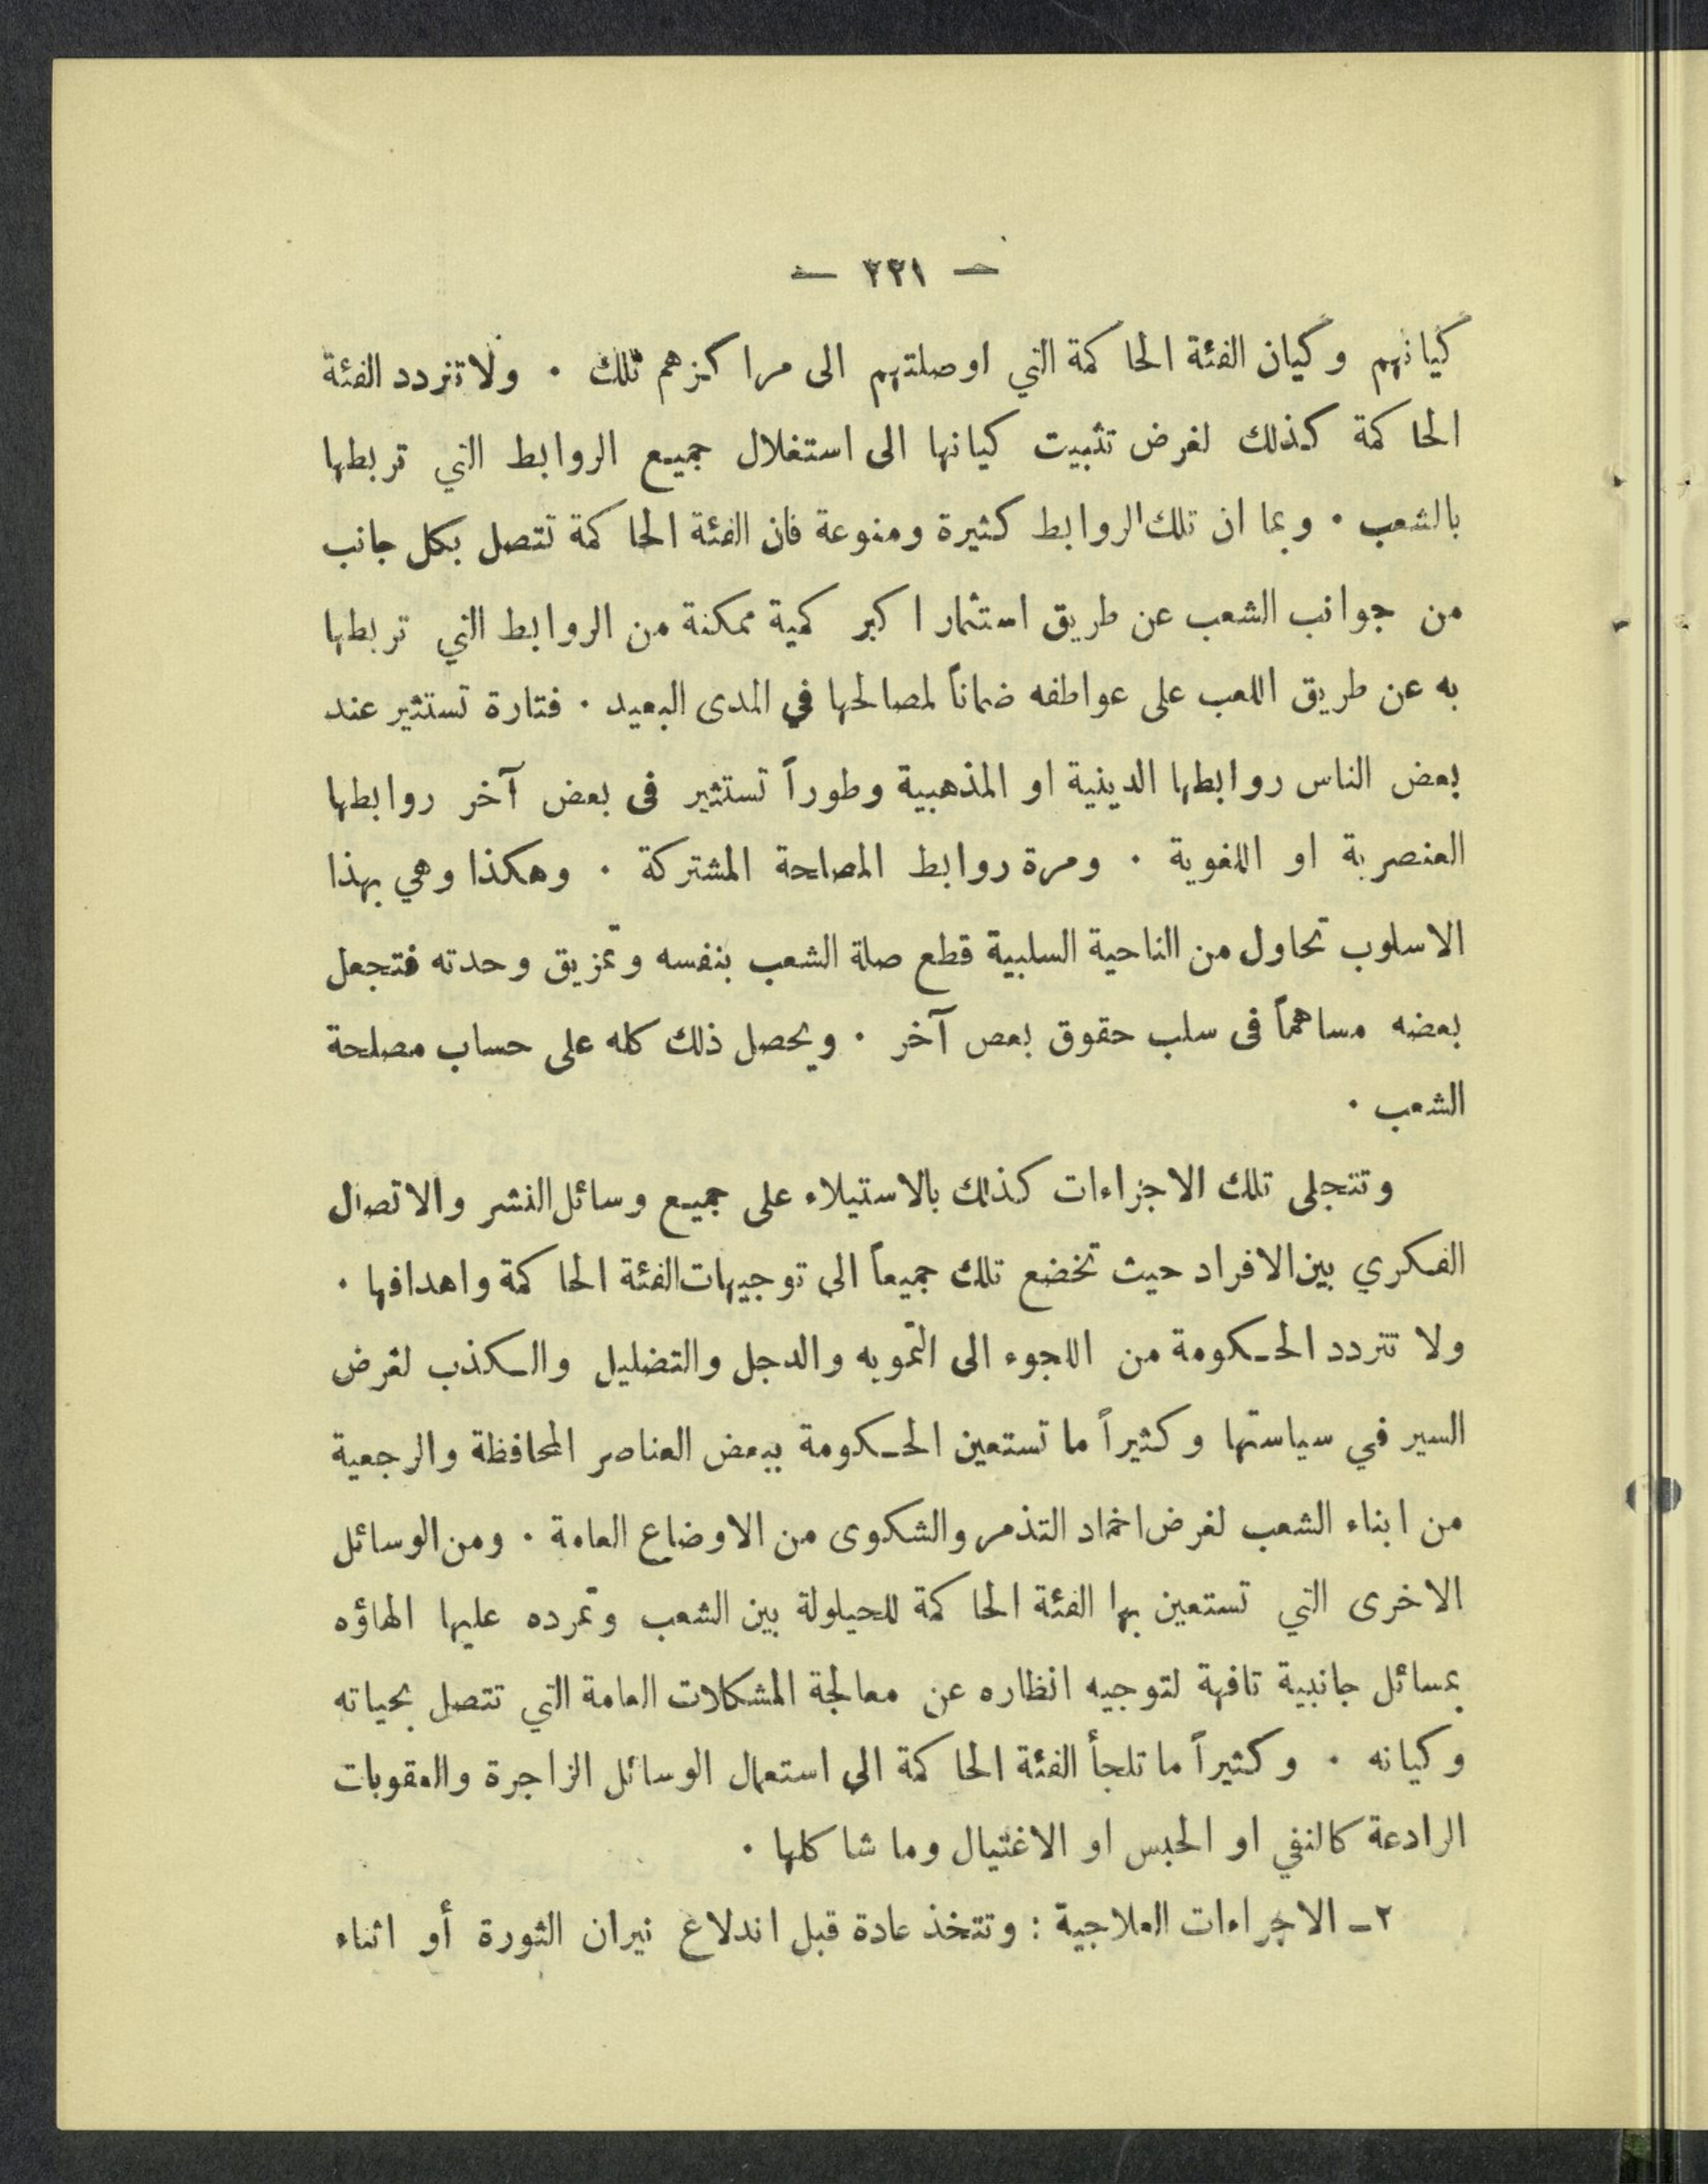 — ٢٢١ —
كيانهم وكيان الفئة الحاكمة التي اوصلتهم الى مراكزهم تلك . ولا تتردد الفئة
الحاكمة كذلك لغرض تثبيت كيانها الى استغلال جميع الروابط التي تربطها
بالشعب . وبما ان تلك الروابط كثيرة ومنوعة فان الفئة الحاكمة تتصل بكل جانب
من جوانب الشعب عن طريق استثمار اكبر كمية ممكنة من الروابط التي تربطها
به عن طريق اللعب على عواطفه ضماناً لمصالحها في المدى البعيد . فتارة تستثير عند
بعض الناس روابطها الدينية او المذهبية وطوراً تستثير فى بعض آخر روابطها
العنصرية او اللغوية . ومرة روابط المصلحة المشتركة . وهكذا وهي بهذا
الاسلوب تحاول من الناحية السلبية قطع صلة الشعب بنفسه وتمزيق وحدته فتجعل
بعضه مساهماً فى سلب حقوق بعص آخر . ويحصل ذلك كله على حساب مصلحة
الشعب .
وتتجلى تلك الاجراءات كذلك بالاستيلاء على جميع وسائل النشر والاتصال
الفكري بين الافراد حيث تخضع تلك جميعاً الى توجيهات الفئة الحاكمة واهدافها .
ولا تتردد الحـكومة من اللجوء الى التمويه والدجل والتضليل والـكذب لغرض
السير في سياستها وكثيراً ما تستعين الحـكومة ببعض العناصر المحافظة والرجعية
من ابناء الشعب لغرض اخماد التذمر والشكوى من الاوضاع العامة . ومن الوسائل
الاخرى التي تستعين بها الفئة الحاكمة للحيلولة بين الشعب وتمرده عليها الهاؤه
بمسائل جانبية تافهة لتوجيه انظاره عن معالجة المشكلات العامة التي تتصل بحياته
وكيانه . وكثيراً ما تلجأ الفئة الحاكمة الى استعمال الوسائل الزاجرة والعقوبات
الرادعة كالنفي او الحبس او الاغتيال وما شاكلها .
٢ـ الاجراءات العلاجية : وتتخذ عادة قبل اندلاع نيران الثورة أو اثناء